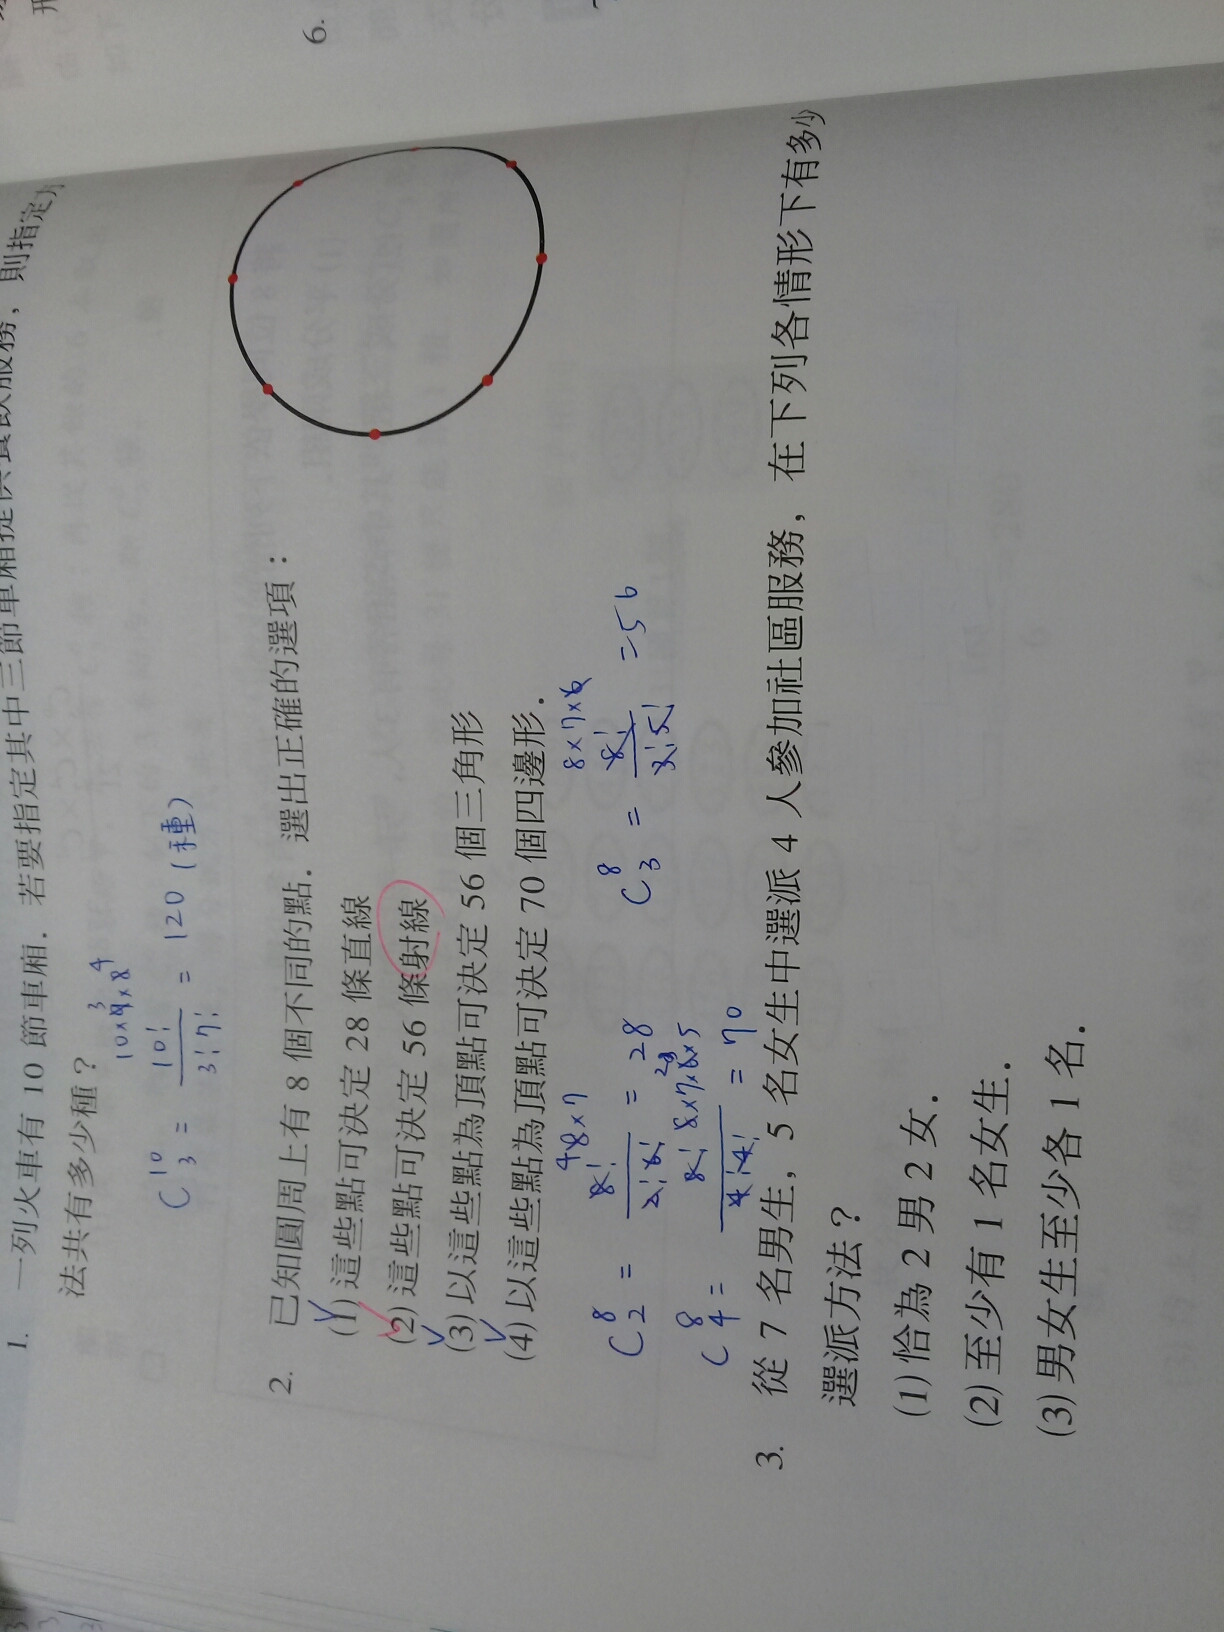 1. 一列火車有 10 節車廂．若要指定其中三節車廂提供餐飲服務，則指定方
法共有多少種？
10×9×8
3 4
C 10 3 = 10! / 3!7! = 120 (種)
2. 已知圓周上有 8 個不同的點．選出正確的選項：
(1) 這些點可決定 28 條直線
(2) 這些點可決定 56 條射線
(3) 以這些點為頂點可決定 56 個三角形
(4) 以這些點為頂點可決定 70 個四邊形．
4 8×7
C 8 2 = 8! / 2!6! = 28
8×7×6
C 8 3 = 8! / 3!5! = 56
8×7×6×5
C 8 4 = 8! / 4!4! = 70
3. 從 7 名男生，5 名女生中選派 4 人參加社區服務，在下列各情形下有多少
選派方法？
(1) 恰為 2 男 2 女．
(2) 至少有 1 名女生．
(3) 男女生至少各 1 名．
6.